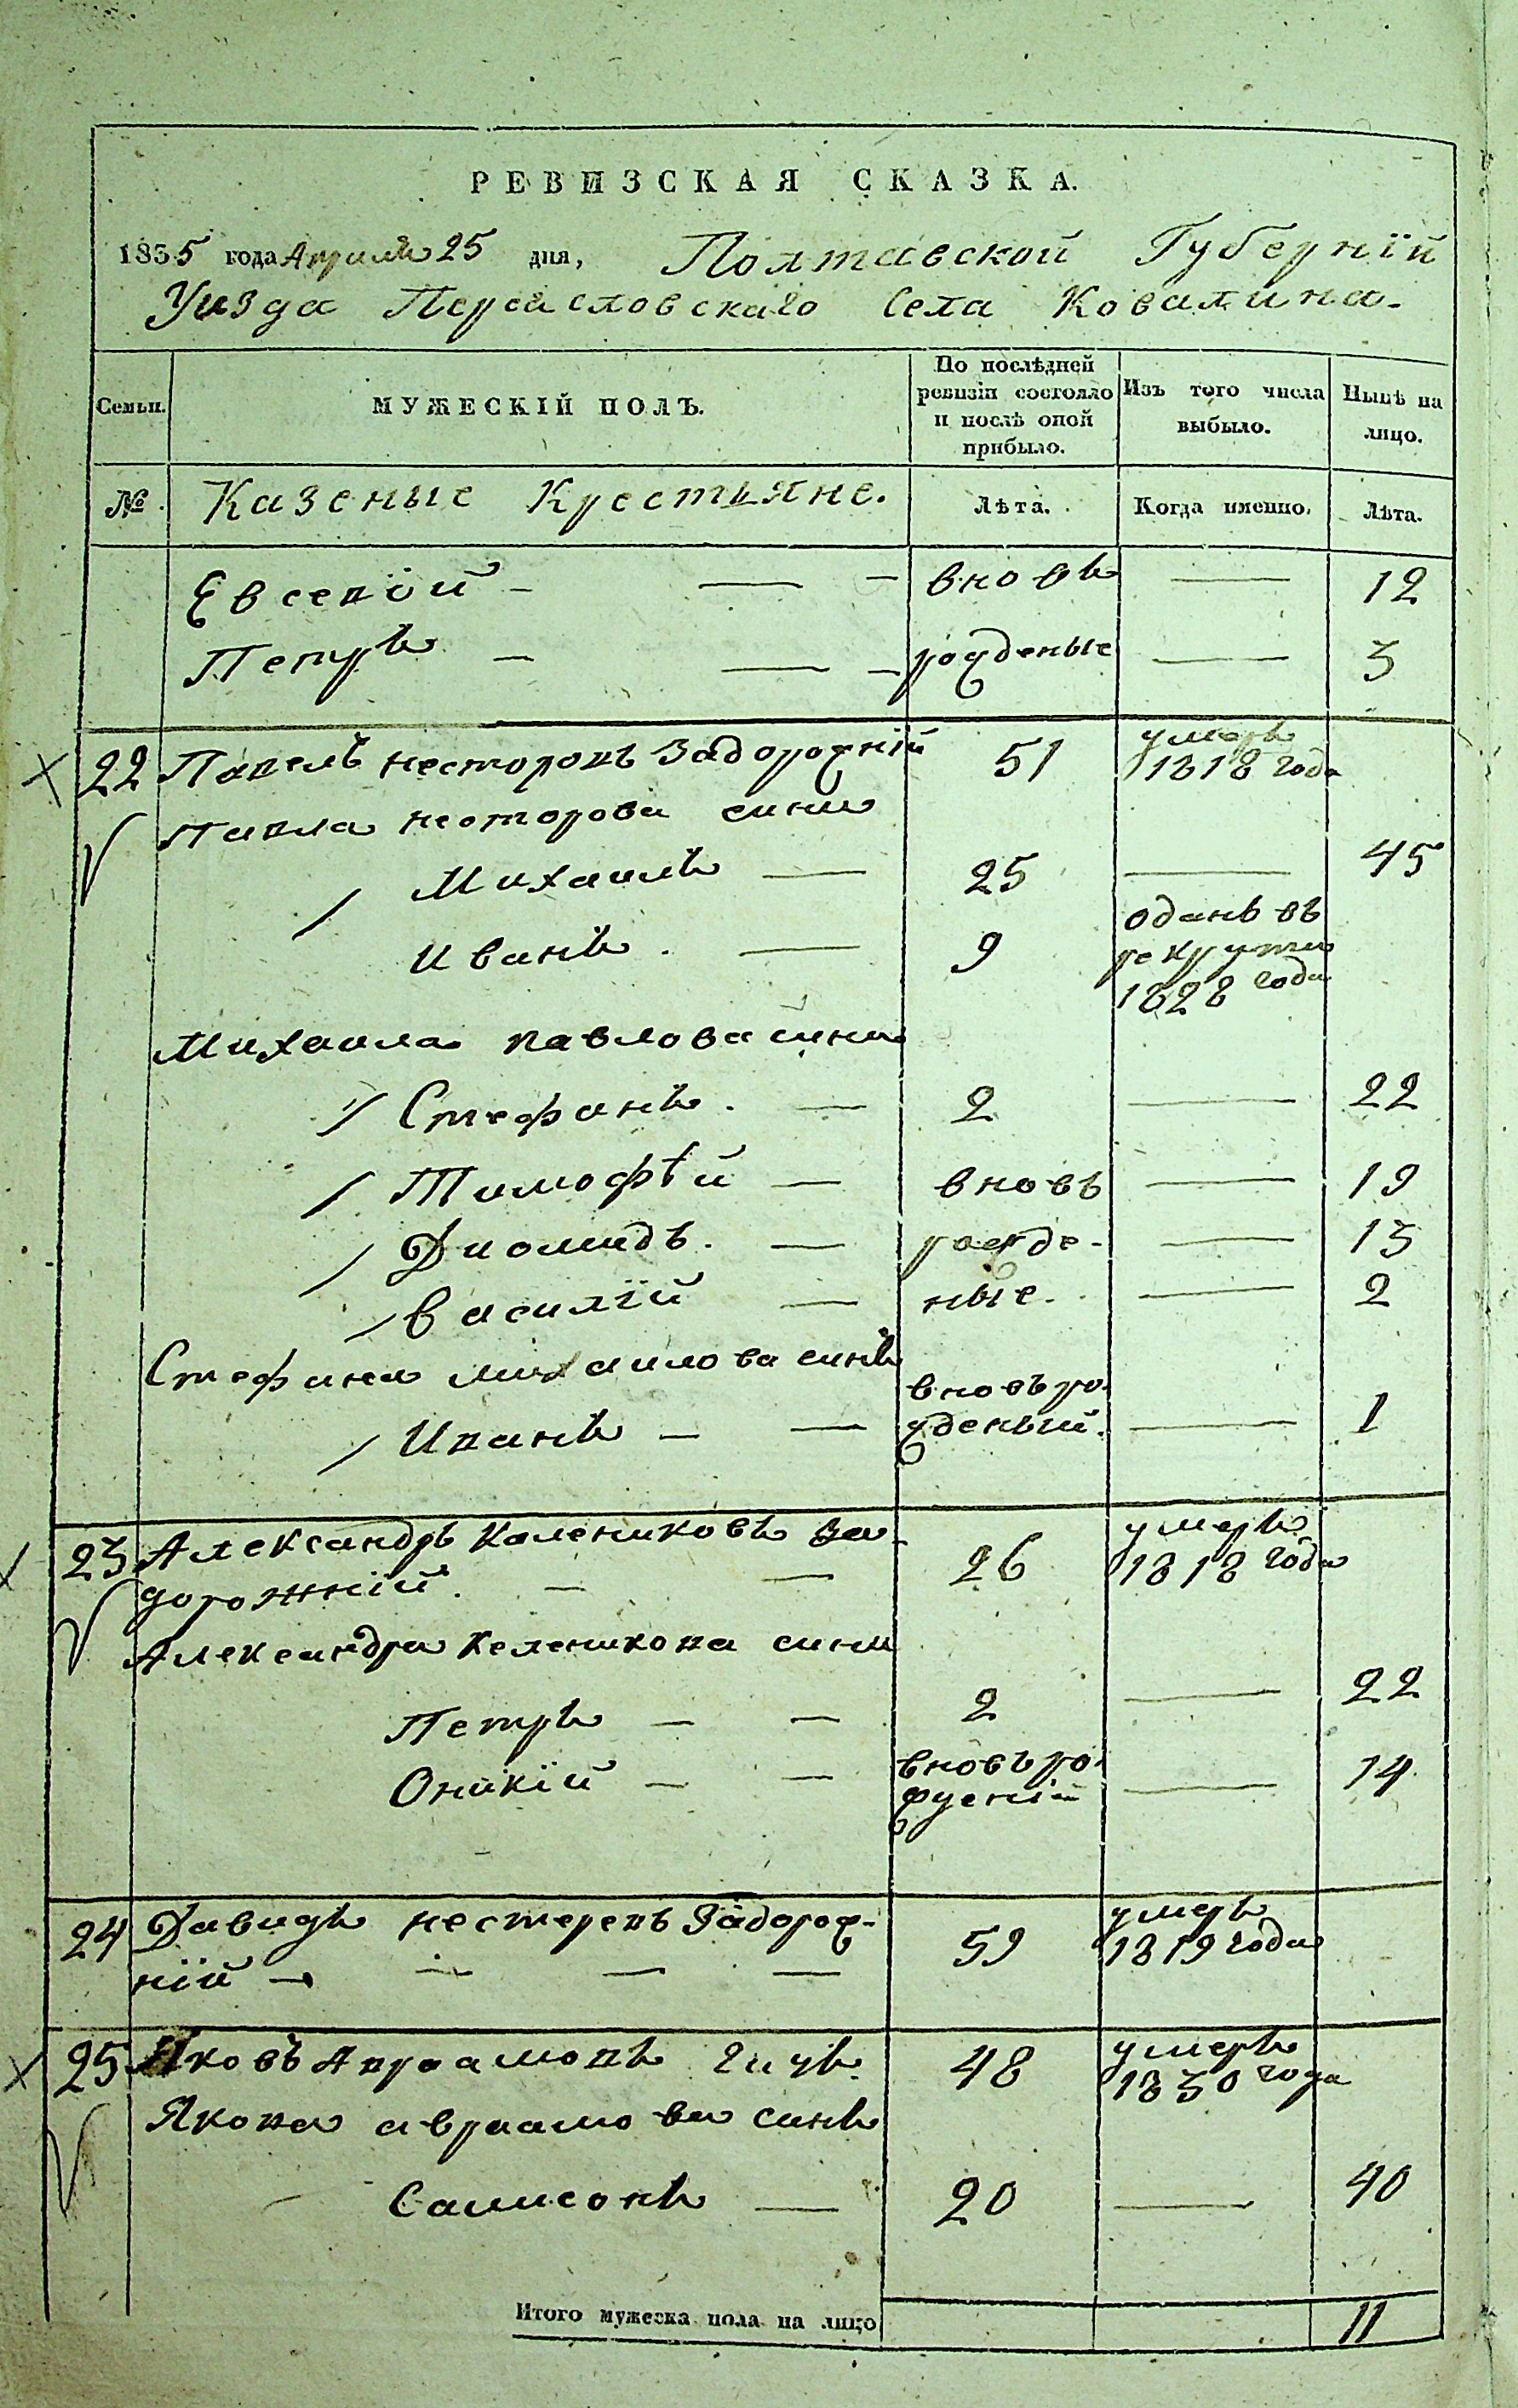 РЕВИЗСКАЯ СКАЗКА.
1835 года Апреля 25 дня, Полтавской Губернїй
Уизда Переасловскаго Села Ковалина.
Семьи. МУЖЕСКІЙ ПОЛЪ. По послѣдней ревизіи состояло и послѣ оной прибыло. Изъ того числа выбыло. Нынѣ на лицо.
№ Казеные Крестьяне. Лѣта. Когда именно. Лѣта.
Евсевїй вновь 12
Петръ рожденые 3
22 Павелъ несторовъ Задорожній 51 умеръ 1818 года
Павла несторова сини
Михаилъ 25 45
Иванъ 9 оданъ въ рекрути 1828 года
Михаила павлова сини
Стефанъ 2 22
Тимофѣй вновь 19
Диомидъ рожде- 13
Василїй ные 2
Стефана михаилова синъ
Иванъ вновь рожденый 1
23 Александръ Калениковъ За-
дорожнїй 26 умеръ 1818 года
Александра Каленикова сини
Петръ 2 22
Оникїй вновь рожденій 14
24 Давидъ нестеревъ Задорож-
нїй 59 умеръ 1819 года
25 Яковъ Авраамовъ 48 умеръ 1830 года
Якова авраамова синъ
Самсонъ 20 40
Итого мужеска пола на лицо 11